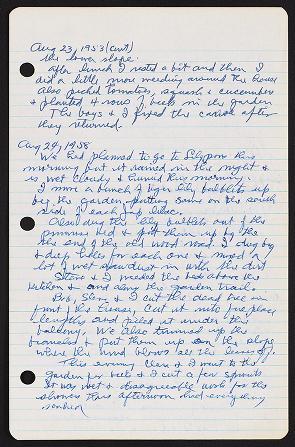 Aug 23, 1953 (cont)
the lower slope.
After lunch I rested a bit and then I
did a little more weeding around the house
also picked tomatoes, squash & cucumbers
& planted 4 rows of beets in the garden
The boys & I fixed the canoe after
they returned.
Aug 24, 1958
We had planned to go to Lilypons this
morning but it rained in the night &
is wet cloudy & humid this morning.
I move a bunch of tiger lily bulblets up
by the garden, putting some on the south
side of each
Cleo dug the lily bulblets out of the
& put them up by the
the end of the old wood road. I dug
deep holes for each one & mixed a
lot of wet sawdust in with the dirt
Steve & I the beds above the
kitchen & and along the garden trail.
Bob, Steve & I cut the dead tree in
front of the house, cut it into fireplace
lengths and piled it under the
balcony. We also trimmed up the
branches & put them up on the slope
where the wind blows all the leaves off.
This evening Cleo & I went to the
garden for beets & I cut a few sprouts
It was wet & disagreeable work for the
showers this afternoon had everything
soaked